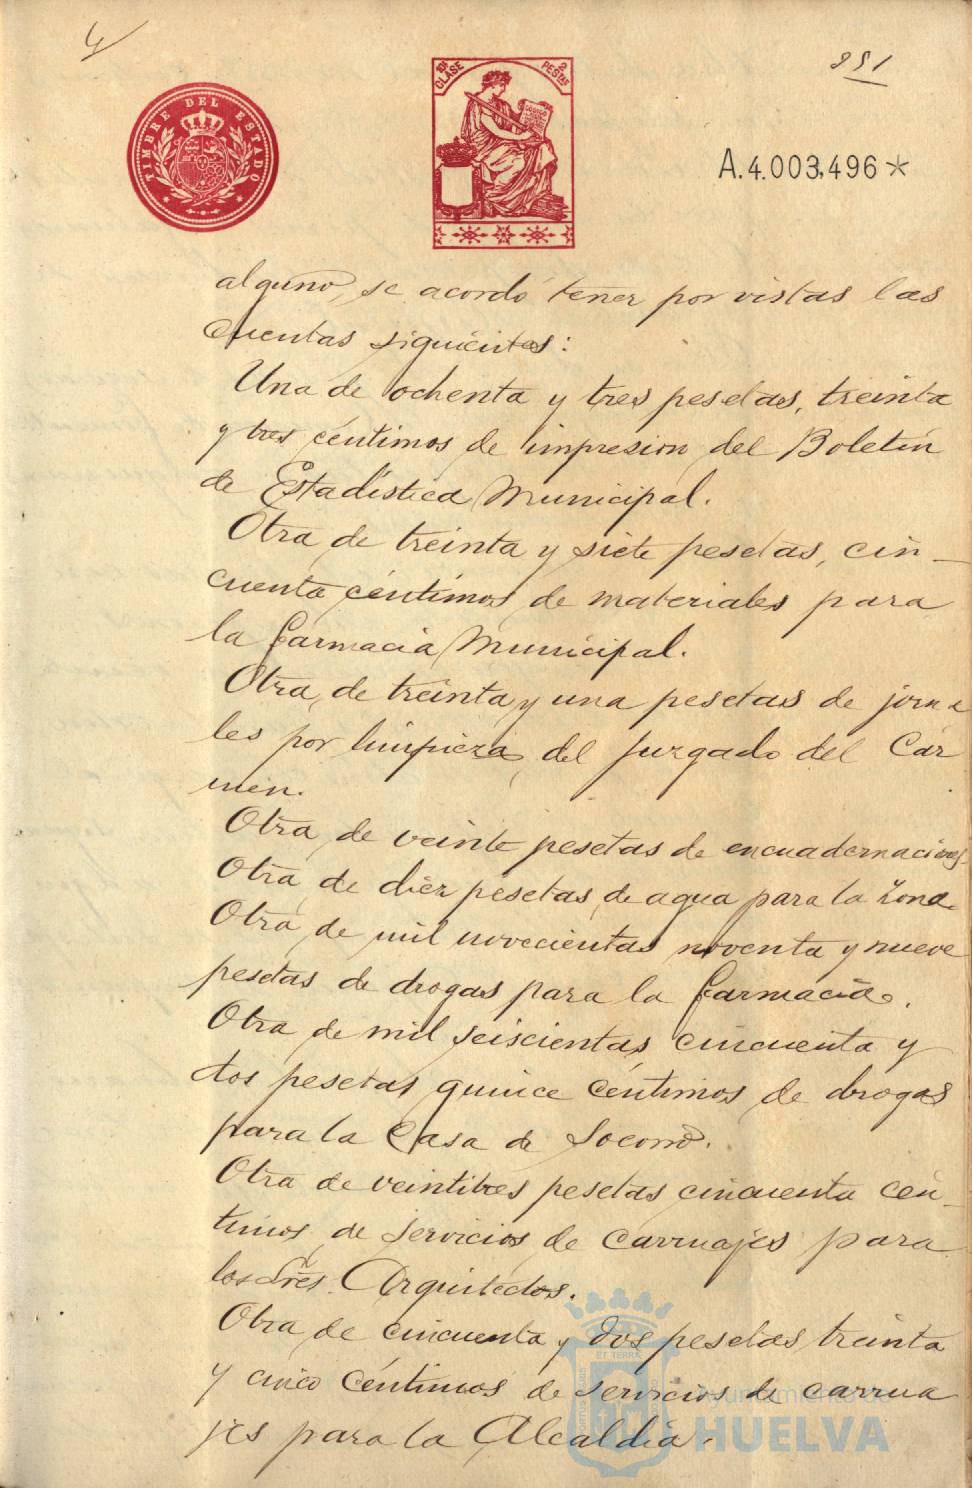 4
351
TIMBRE DEL ESTADO
1ER CLASE
2 PESTAS
A.4.003,496*
alguno, se acordó tener por vistas las
cuentas siguientes:
Una de ochenta y tres pesetas, treinta
y tres céntimos de impresion del Boletín
de Estadística Municipal.
Otra de treinta y siete pesetas, cin-
cuenta céntimos de materiales para
la farmacia Municipal.
Otra, de treinta y una pesetas de jorna
les por limpieza del Juzgado del Cár
men.
Otra de veinte pesetas de encuadernaciones-
Otra de diez pesetas de agua para la zona.
Otra, de mil novecientas noventa y nueve
pesetas de drogas para la farmacia.
Otra de mil seiscientas cincuenta y
dos pesetas quince céntimos de drogas
para la Casa de Socorro.
Otra de veintitres pesetas cincuenta cén-
timos de servicios de carruajes para
los Sres. Arquitectos.
Otra, de cincuenta y dos pesetas treinta
y cinco céntimos de servicios de carrua
jes para la Alcaldia.
Ayuntamiento de
HUELVA